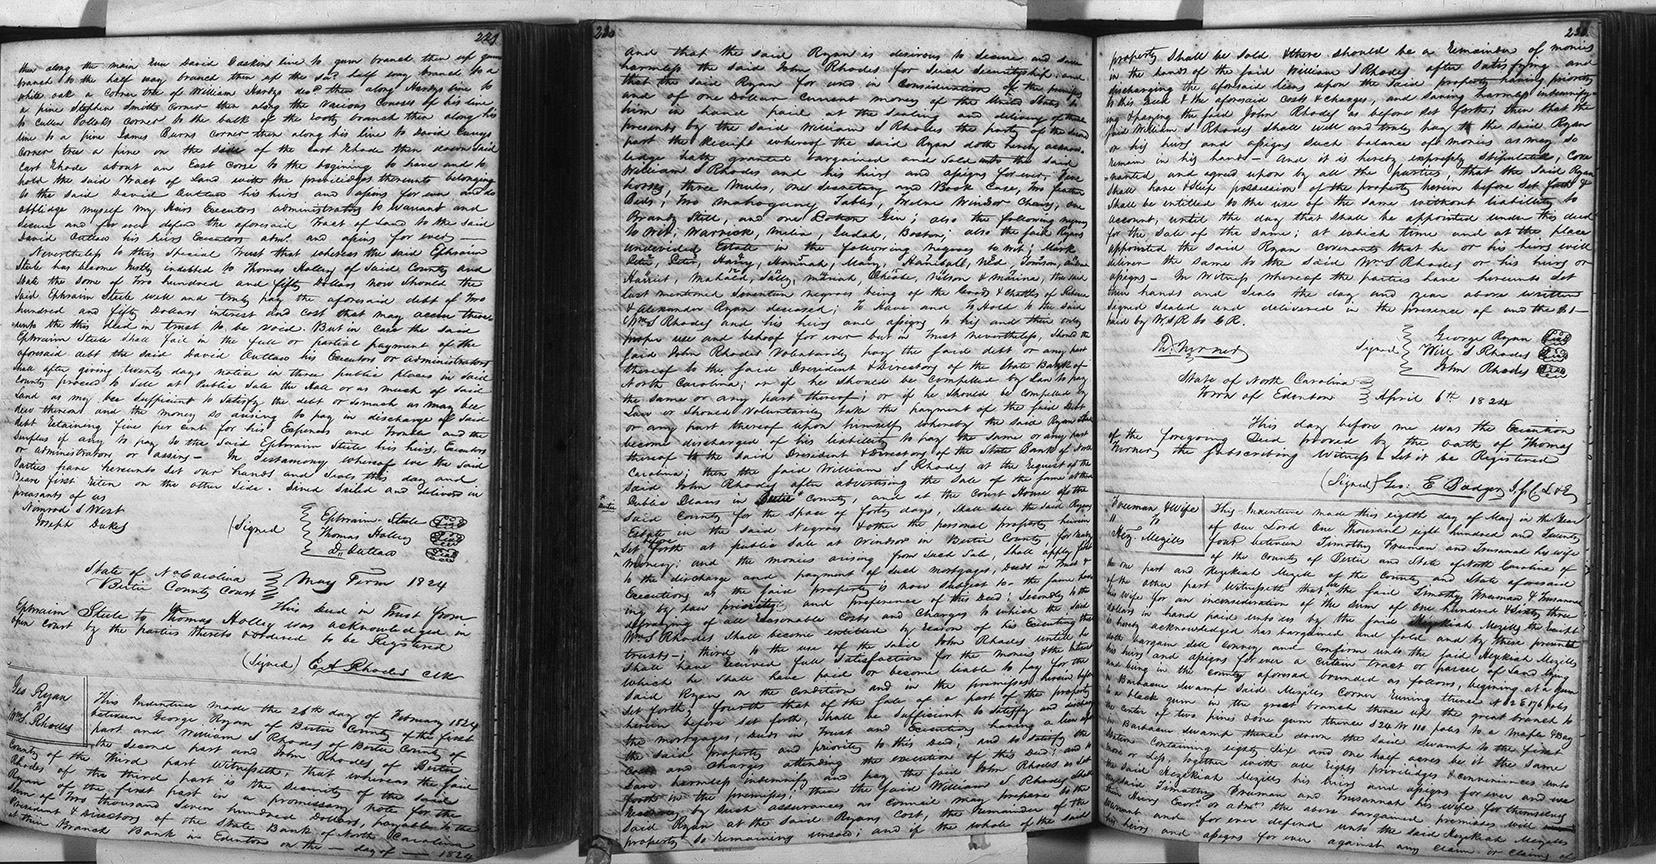 229
then along the main run David Caskins line to gum branch then up gum
branch to the half way branch then up the sd half way branch to a
white oak a corner tree of William Hardys decd then along Hardys line to
a pine Stephen Smiths corner then along the Various Courses of his line
to Cullen Pollocks corner to the back of the rooty branch then along his
line to a pine James Burns corner then along his line to David Currys
corner tree a pine on the side of the Cart Rhode then down said
Cart Rhode about an East Corse to the begining to have and to
hold the said Tract of Land with the priviledges thereunto belonging
to the said David Outlaw his heirs and asigns for ever and do
obblidge myself my Heirs Executors administrators to warrant and
secure and for ever defend the aforesaid Tract of Land to the said
David Outlaw his heirs Executors admr. and asigns for ever
Nevertheliss to this Special trust that whereas the said Ephraim
Steele has become justly indebted to Thomas Holley of Said County and
State the some of Two hundred and fifty Dollars now should the
Said Ephraim Steele well and truly pay the aforesaid debt of Two
hundred and fifty Dollars interest and cost that may accrue there
unto the this deed in trust to be void. But in case the said
Ephraim Steele Shall fail in the full or partial payment of the
aforesaid debt the said David Outlaw his Executors or administrators
shall after giving twenty days notice in three public places in said
County proceed to sell at Public Sale the Sale or as much of said
Land as may be sufficient to Satisfy the debt or somuch as may bee
dew thereon and the money so arising to pay in discharge of said
debt retaining five per cent for his Expenses and Trouble and the
Surplus if any to pay to the Said Ephraim Steele his heirs, Executors
or administrators or assins - In Testamony whereof we the said
Parties have hereunto set our hands and Seals this day and
Year first riten on the other side. Sined Sealed and deliverd in
presants of us
Nimrod S West
Joseph Dukes
(Signed
Ephraim Steele Seal
Thomas Holley Seal
D. Outlaw Seal
State of No Carolina
Bertie County Court
May Term 1824
This deed in Trust from
Ephraim Steele to Thomas Holley was acknowledged in
open Court by the parties thereto & ordered to be Registered
(Signed) E A Rhodes Clk
Geo Ryan
to
Wm S. Rhodes
This Indenture made the 26th day of February 1824
between George Ryan of Bertie County of the first
part and William S Rhodes of Bertie County of
the Second part and John Rhodes of Bertie
County of the third part Witnesseth, that whereas the said
Rhodes of the third part is the Security of the said
Ryan of the first part in a promissary note for the
Sum of Two thousand Seven hundred Dollars, payable to the
President & directory of the State Bank of North Carolina
at their Branch Bank in Edenton on the — day of — 1824
230
And that the said Ryan is desirous to secure and save
harmless the said John Rhodes for such Securityship, and
that the said Ryan for and in Consideration of the premises
and of one Dollar Current money of the United States to
him in hand paid at the sealing and delivery of these
presents by the said William S Rhodes the party of the second
part the Receipt whereof the said Ryan doth hereby acknow
ledge hath granted bargained and Sold unto the said
William S Rhodes and his heirs and asigns for ever, five
horses, three Mules, one Secretary and Book Case, two feather
Beds, Two Mahogany Tables, Twelve Windsor Chairs, one
Brandy Still, and one Cotton Gin; also the following negroes
to wit; Warrick, Milia, Judah, Boston; also the said Ryans
undivided Estate in the following negroes to wit; Mark
Harriet, Mahala, Sally,
last mentioned Seventeen negroes being of the Goods & Chattles of
& Alexander Ryan deceased; To Have and To Hold to the said
Wm S Rhodes and his heirs and asigns to his and their only
proper use and behoof for ever but in Trust nevertheless, Should the
said John Rhodes Voluntarily pay the said debt or any part
thereof to the said President & Directory of the State Bank of
North Carolina; or if he should be compelled by Law to pay
the same or any part thereof; or if he should be Compelled by
Law or Should Voluntarily take the payment of the said debt
or any part thereof upon himself whereby the said Ryan shall
become discharged of his liability to pay the Same or any part
thereof to the said President & Directory of the State Bank of North
Carolina; then the said William S Rhodes at the request of the
said John Rhodes after advertising the Sale of the same at three
Public Places in Bertie County, and at the Court House of the
Said County for the Space of forty days, Shall sell the said Ryans
Estate in the said Negroes & other the personal property herein
before
Set forth at public Sale at Windsor in Bertie County, for ready
Money; and the monies arising from said Sale, Shall apply first
to the discharge and payment of such mortgages, deeds in Trust &
Executions as the said property is now Subject to the same hav
ing by law priority and preference of this Deed; Secondly to the
defraying of all reasonable Costs and Charges to which the said
Wm S Rhodes Shall become intitled by reason of his Executing this
trusts; third to the use of the said John Rhodes untill he
Shall have received full Satisfaction for the monies & the interest
which he Shall have paid or become liable to pay for the
said Ryan on the Condition and in the premises herein before
Set forth; fourth that if the sale of a part of the property
herein before Set forth, Shall be sufficient to Satisfy and discharge
the mortgages, deeds in Trust and Executions having a lien upon
the said Property and priority to this Deed; and to satisfy the
Costs and Charges attending the execution of this Deed; and to
Save harmless indemnify and pay the said John Rhodes as set
forth in the premises; then the said William S Rhodes Shall
by such assurances as Council may prepare to the
Said Ryan at the Said Ryans Cost, the Remainder of the
property So remaining unsold; and if the whole of the Said
231
property Shall be Sold & there should be a Remainder of monies
in the hands of the said William S Rhodes after Satisfying and
discharging the aforesaid liens upon the Said property having priority
to this Deed & the aforesaid Costs & charges, and saving harmless indemnify
ing & paying the said John Rhodes as before set forth; then that the
said William S Rhodes Shall well and truly pay to the said Ryan
or his heirs and asigns Such balance of monies as may so
remain in his hands - And it is hereby expressly Stipulated, Cove
nanted and agreed upon by all the parties, that the Said Ryan
Shall have & keep possession of the property herein before Set forth &
Shall be intitled to the use of the same without liability to
account, until the day that Shall be appointed under this deed
for the Sale of the same; at which time and at the place
appointed the said Ryan Covenants that he or his heirs will
deliver the same to the said Wm S Rhodes or his heirs or
asigns - In Witness whereof the parties have hereunto Set
their hands and Seals the day and year above written
Signed Sealed and delivered in the presence of and the $1
paid by W.S.R to G.R.
Signed
George Ryan Seal
Will S Rhodes Seal
John Rhodes Seal
State of North Carolina
Town of Edenton
April 6th 1824
This day before me was the Execution
of the foregoing Deed proved by the oath of Thomas
Turner the Subscribing Witness. Let it be Registered
(Signed) Geo: E Badger
Freeman & Wife
to
Hez. Mizells
This Indenture made this eighth day of May in the Year
of our Lord One Thousand eight hundred and twenty
four between Timothy Freeman and Frusanah his wife
of the County of Bertie and State of North Carolina of
the one part and Hezekiah Mizells of the County and State aforesaid
of the other part Witnesseth that we the said Timothy Freeman & Frusanah
his wife for an inconsideration of the Sum of One hundred & Sixty three
Dollars in hand paid unto us by the said Hezekiah Mizells the Receipt
is hereby acknowledged has bargained and sold and by these presents
doth bargain Sell convey and Confirm unto the said Hezekiah Mizells
his heirs and asigns for ever a certain tract or parcel of Land lying
and being in the County aforesaid bounded as follows, begining at a Gum
in Barbacue Swamp Said Mizells Corner runing thence N 32 E 176 poles
to a black gum in the great branch thence up the great branch to
the center of two pines & one gum thence S 24 W 110 poles to a Maple & Bay
in Barbacue Swamp thence down the said Swamp to the first
Station Containing eighty Six and one half acres be it the same
more or less, together with all rights priviledges & conveniences unto
the said Hezekiah Mizells his heirs and asigns for ever and we
the said Timothy Freeman and Frusannah his wife for themselves
their heirs Exors. or admrs the above bargained premises will
Warrant and for ever defend unto the said Hezekiah Mizells
his heirs and asigns for ever against any Claim or Claims of